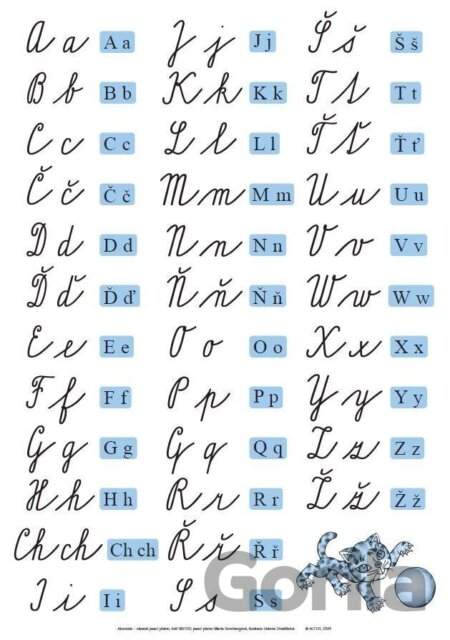 A a A a J j J j Š š Š š
B b B b K k K k T t T t
C c C c L l L l Ť ť Ť ť
Č č Č č M m M m U u U u
D d D d N n N n V v V v
Ď ď Ď ď Ň ň Ň ň W w W w
E e E e O o O o X x X x
F f F f P p P p Y y Y y
G g G g Q q Q q Z z Z z
H h H h R r R r Ž ž Ž ž
Ch ch Ch ch Ř ř Ř ř
I i I i S s S s
Gorila